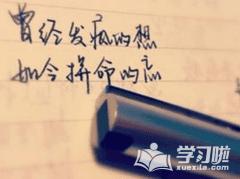 曾经发疯的想
如今拼命的忘
学习啦
www.xuexila.com